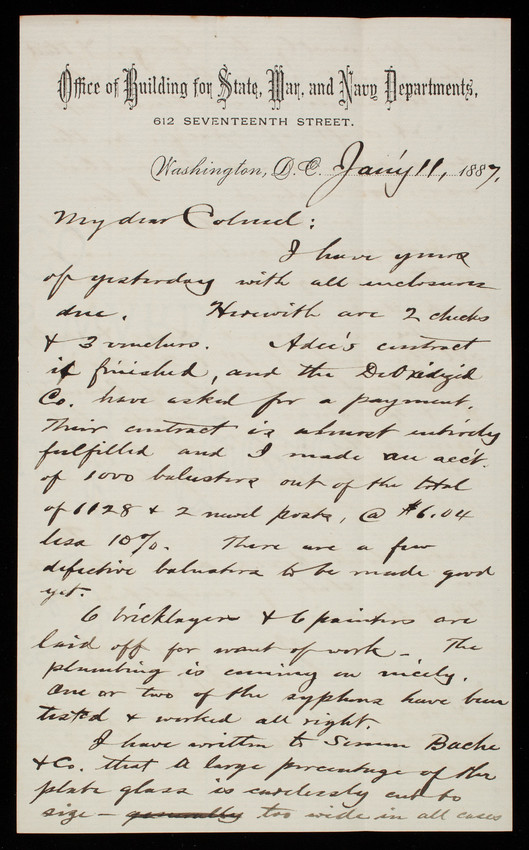 Office of Building for State, War, and Navy Departments,
612 SEVENTEENTH STREET.
Washington, D.C. Jan'y 11, 1887.
My dear Colonel:
I have yours
of yesterday with all enclosures
due. Herewith are 2 checks
& 3 vouchers. Adee's contract
is finished, and the DeOxidized
Co. have asked for a payment.
Their contract is almost entirely
fulfilled and I made an acc't.
of 1000 balusters out of the total
of 1128 & 2 newel posts, @ $6.04
less 10%. There are a few
defective balusters to be made good
yet.
6 bricklayers & 6 painters are
laid off for want of work – The
plumbing is coming on nicely.
One or two of the syphons have been
tested & worked all right.
I have written to Semon Bache
& Co. that a large percentage of the
plate glass is carelessly cut to
size – generally too wide in all cases